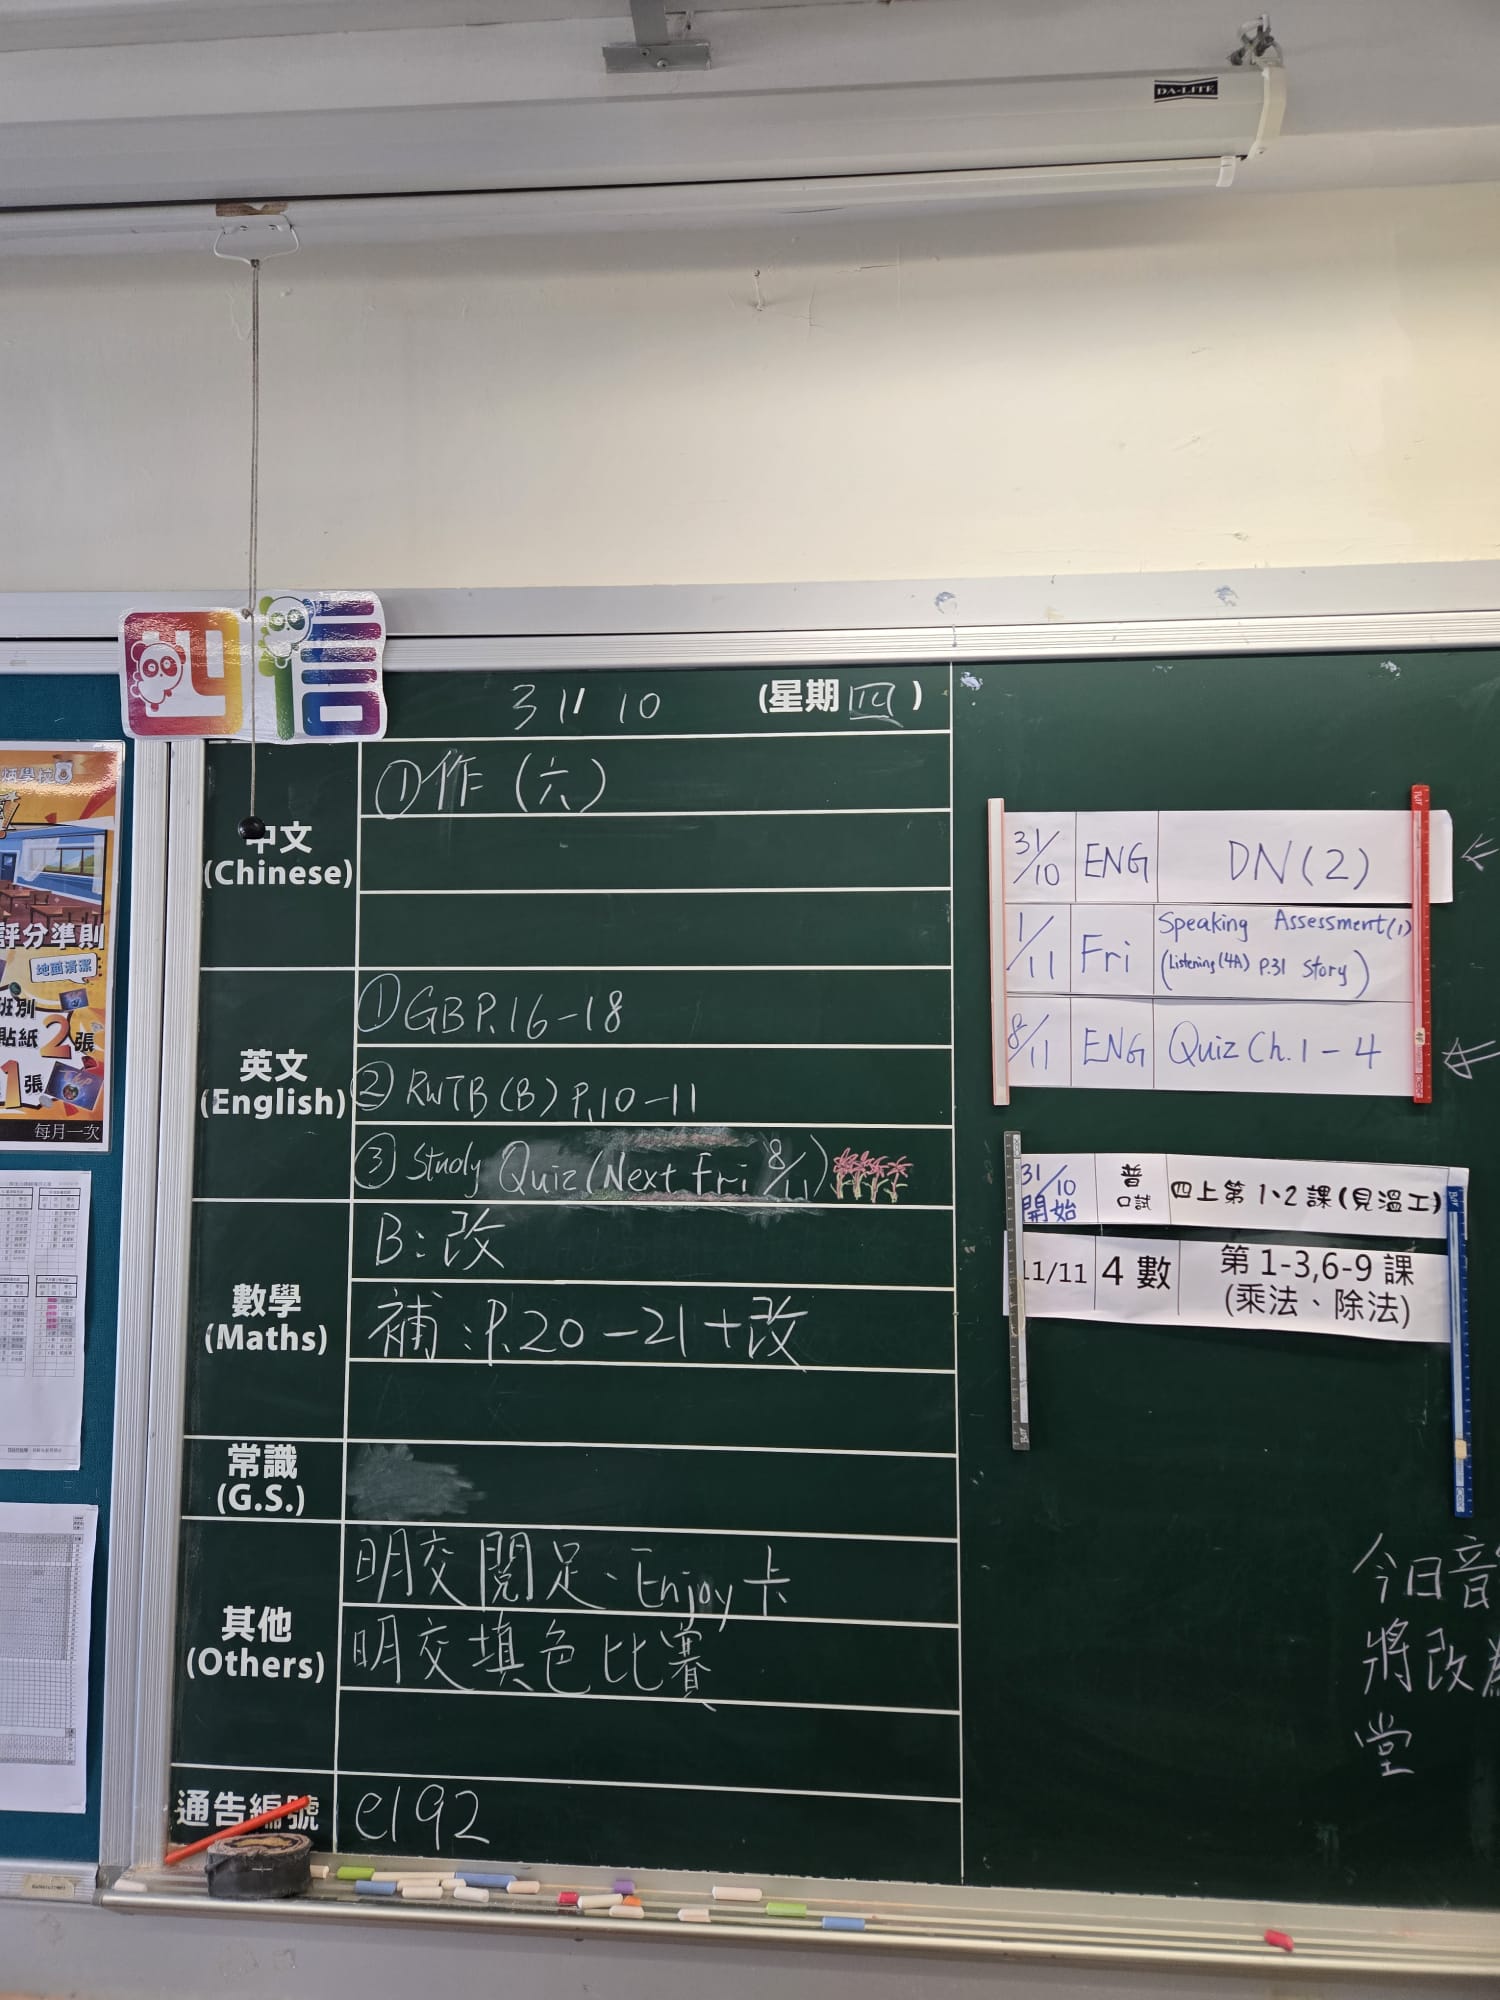 DA-LITE
四信
31 10 (星期四)
中文
(Chinese)
①作(六)
英文
(English)
①GB P.16-18
②RWTB(B) P.10-11
③Study Quiz (Next Fri 8/11)
數學
(Maths)
B:改
補:P.20-21+改
常識
(G.S.)
其他
(Others)
明交閱足、Enjoy卡
明交填色比賽
通告編號
e192
31/10 ENG DN(2)
1/11 Fri Speaking Assessment(1)
(Listening(4A) P.31 Story)
8/11 ENG Quiz Ch.1-4
31/10開始 普口試 四上第1、2課(見溫工)
11/11 4數 第1-3,6-9課
(乘法、除法)
今日音
將改為
堂
評分準則
地面清潔
班別
貼紙2張
1張
每月一次